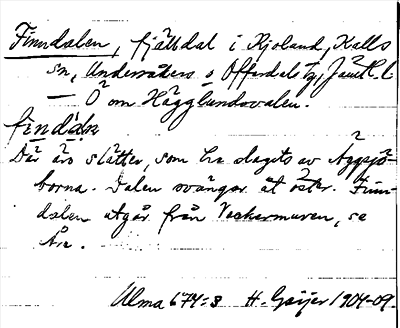 Finndalen, fjälldal i Kjoland, Kalls
sn, Undersåkers o Offerdals tg, Jämtl. l.
— Ö om Hägglundsvalen.
Där äro slåtter, som ha slagits av Äggsjö-
borna. Dalen svänger åt öster. Finn-
dalen utgår från Verkasmuren, se
Åre.
Ulma 674:3 H. Geijer 1904-09.